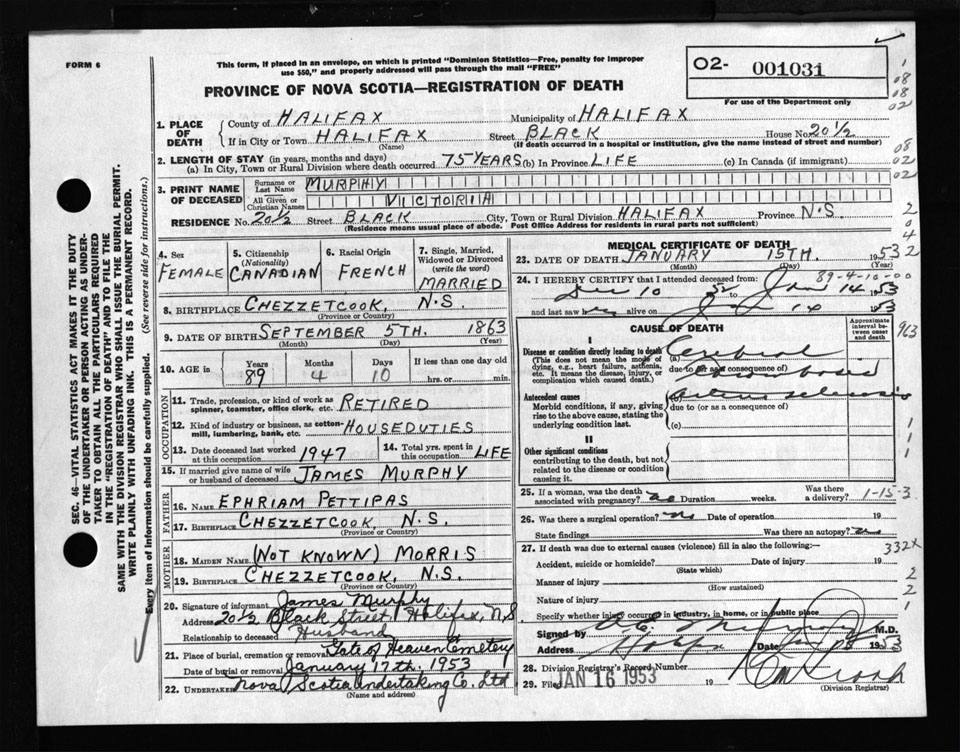 FORM 6
This form, if placed in an envelope, on which is printed "Dominion Statistics—Free, penalty for improper
use $50," and properly addressed will pass through the mail "FREE"
PROVINCE OF NOVA SCOTIA—REGISTRATION OF DEATH
O2- 001031
For use of the Department only
SEC. 46—VITAL STATISTICS ACT MAKES IT THE DUTY
OF THE UNDERTAKER OR PERSON ACTING AS UNDER-
TAKER TO OBTAIN ALL THE PARTICULARS REQUIRED
IN THE "REGISTRATION OF DEATH" AND TO FILE THE
SAME WITH THE DIVISION REGISTRAR WHO SHALL ISSUE THE BURIAL PERMIT.
WRITE PLAINLY WITH UNFADING INK. THIS IS A PERMANENT RECORD.
Every item of information should be carefully supplied. (See reverse side for instructions.)
1. PLACE OF DEATH
County of HALIFAX Municipality of HALIFAX
If in City or Town HALIFAX Street BLACK House No. 20 1/2
(Name) (If death occurred in a hospital or institution, give the name instead of street and number)
2. LENGTH OF STAY (in years, months and days)
(a) In City, Town or Rural Division where death occurred 75 YEARS (b) In Province LIFE (c) In Canada (if immigrant)
3. PRINT NAME OF DECEASED
Surname or Last Name MURPHY
All Given or Christian Names VICTORIA
RESIDENCE No. 20 1/2 Street BLACK City, Town or Rural Division HALIFAX Province N.S.
(Residence means usual place of abode. Post Office Address for residents in rural parts not sufficient)
4. Sex FEMALE
5. Citizenship (Nationality) CANADIAN
6. Racial Origin FRENCH
7. Single, Married, Widowed or Divorced (write the word) MARRIED
8. BIRTHPLACE CHEZZETCOOK, N.S.
(Province or Country)
9. DATE OF BIRTH SEPTEMBER 5TH. 1863
(Month) (Day) (Year)
10. AGE in Years 89 Months 4 Days 10 If less than one day old
hrs. or min.
OCCUPATION
11. Trade, profession, or kind of work as
spinner, teamster, office clerk, etc. RETIRED
12. Kind of industry or business, as cotton-
mill, lumbering, bank, etc. HOUSEDUTIES
13. Date deceased last worked at this occupation 1947
14. Total yrs. spent in this occupation LIFE
15. If married give name of wife or husband of deceased JAMES MURPHY
FATHER
16. NAME EPHRIAM PETTIPAS
17. BIRTHPLACE CHEZZETCOOK, N.S.
(Province or Country)
MOTHER
18. MAIDEN NAME (NOT KNOWN) MORRIS
19. BIRTHPLACE CHEZZETCOOK, N.S.
(Province or Country)
20. Signature of informant James Murphy
Address 20 1/2 Black Street, Halifax, N.S
Relationship to deceased Husband
21. Place of burial, cremation or removal Gate of Heaven Cemetery
Date of burial or removal January 17th. 1953
22. UNDERTAKER Nova Scotia Undertaking Co. Ltd
(Name and address)
MEDICAL CERTIFICATE OF DEATH
23. DATE OF DEATH JANUARY 15TH. 1953
(Month) (Day) (Year)
89-4-10-00
24. I HEREBY CERTIFY that I attended deceased from:
Dec 10 52 to Jan 14 1953
and last saw alive on 14 1953
CAUSE OF DEATH
Approximate interval between onset and death
I
Disease or condition directly leading to death
(This does not mean the mode of dying, e.g., heart failure, asthenia, etc. It means the disease, injury, or complication which caused death.)
(a) Cerebral
due to (or as a consequence of)
Antecedent causes
Morbid conditions, if any, giving rise to the above cause, stating the underlying condition last.
(b) arterio sclerosis
due to (or as a consequence of)
(c)
II
Other significant conditions
contributing to the death, but not related to the disease or condition causing it.
25. If a woman, was the death associated with pregnancy? no Duration weeks. Was there a delivery?
1-15-3
26. Was there a surgical operation? no Date of operation 19
State findings Was there an autopsy? no
27. If death was due to external causes (violence) fill in also the following:—
332X
Accident, suicide or homicide? Date of injury 19
(State which)
Manner of injury
(How sustained)
Nature of injury
Specify whether injury occurred in industry, in home, or in public place
Signed by M.D.
Address Date 1953
28. Division Registrar's Record Number
29. Filed JAN 16 1953 19
(Division Registrar)